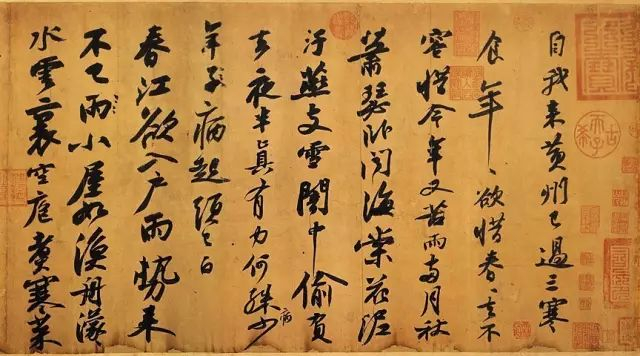 自我來黃州已過三寒
食年〻欲惜春〻去不
容惜今年又苦雨兩月秋
蕭瑟卧聞海棠花泥
汙燕支雪闇中偷負
去夜半真有力何殊少
病
年子病起頭已白
春江欲入戶雨勢來
不已雨小屋如漁舟濛〻
水雲裏空庖煑寒菜
古希天子